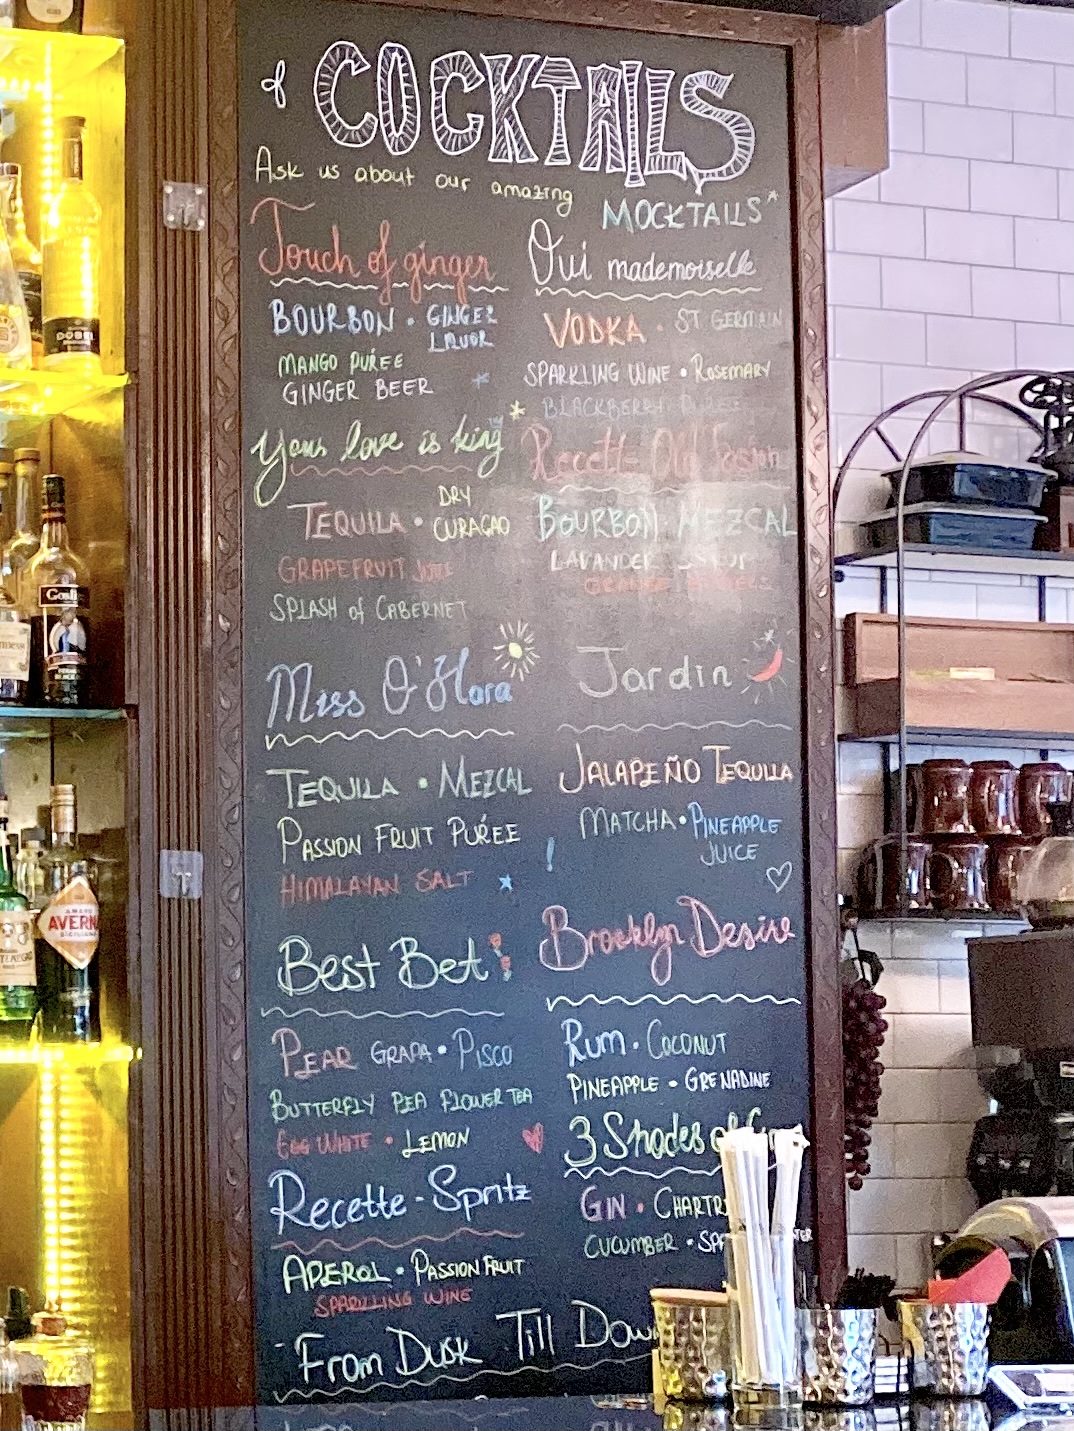 COCKTAILS
Ask us about our amazing
MOCKTAILS*
Touch of ginger
BOURBON • GINGER
LIQUOR
MANGO PURÉE
GINGER BEER
Your love is king
TEQUILA • DRY
CURAÇAO
GRAPEFRUIT JUICE
SPLASH of CABERNET
Miss O'Hara
TEQUILA • MEZCAL
PASSION FRUIT PURÉE
HIMALAYAN SALT
Best Bet
PEAR GRAPA • PISCO
BUTTERFLY PEA FLOWER TEA
EGG WHITE • LEMON
Recette - Spritz
APEROL • PASSION FRUIT
SPARKLING WINE
Oui mademoiselle
VODKA • ST GERMAIN
SPARKLING WINE • ROSEMARY
BLACKBERRY
Recette Old
BOURBON MEZCAL
LAVANDER
ORANGE
Jardin
JALAPEÑO TEQUILA
MATCHA • PINEAPPLE
JUICE
Brooklyn Desire
RUM • COCONUT
PINEAPPLE • GRENADINE
3 Shades of
GIN • CHARTR
CUCUMBER •
From Dusk Till Daw
Gosli
AMARO
AVERN
SICILIANO
DOBEL